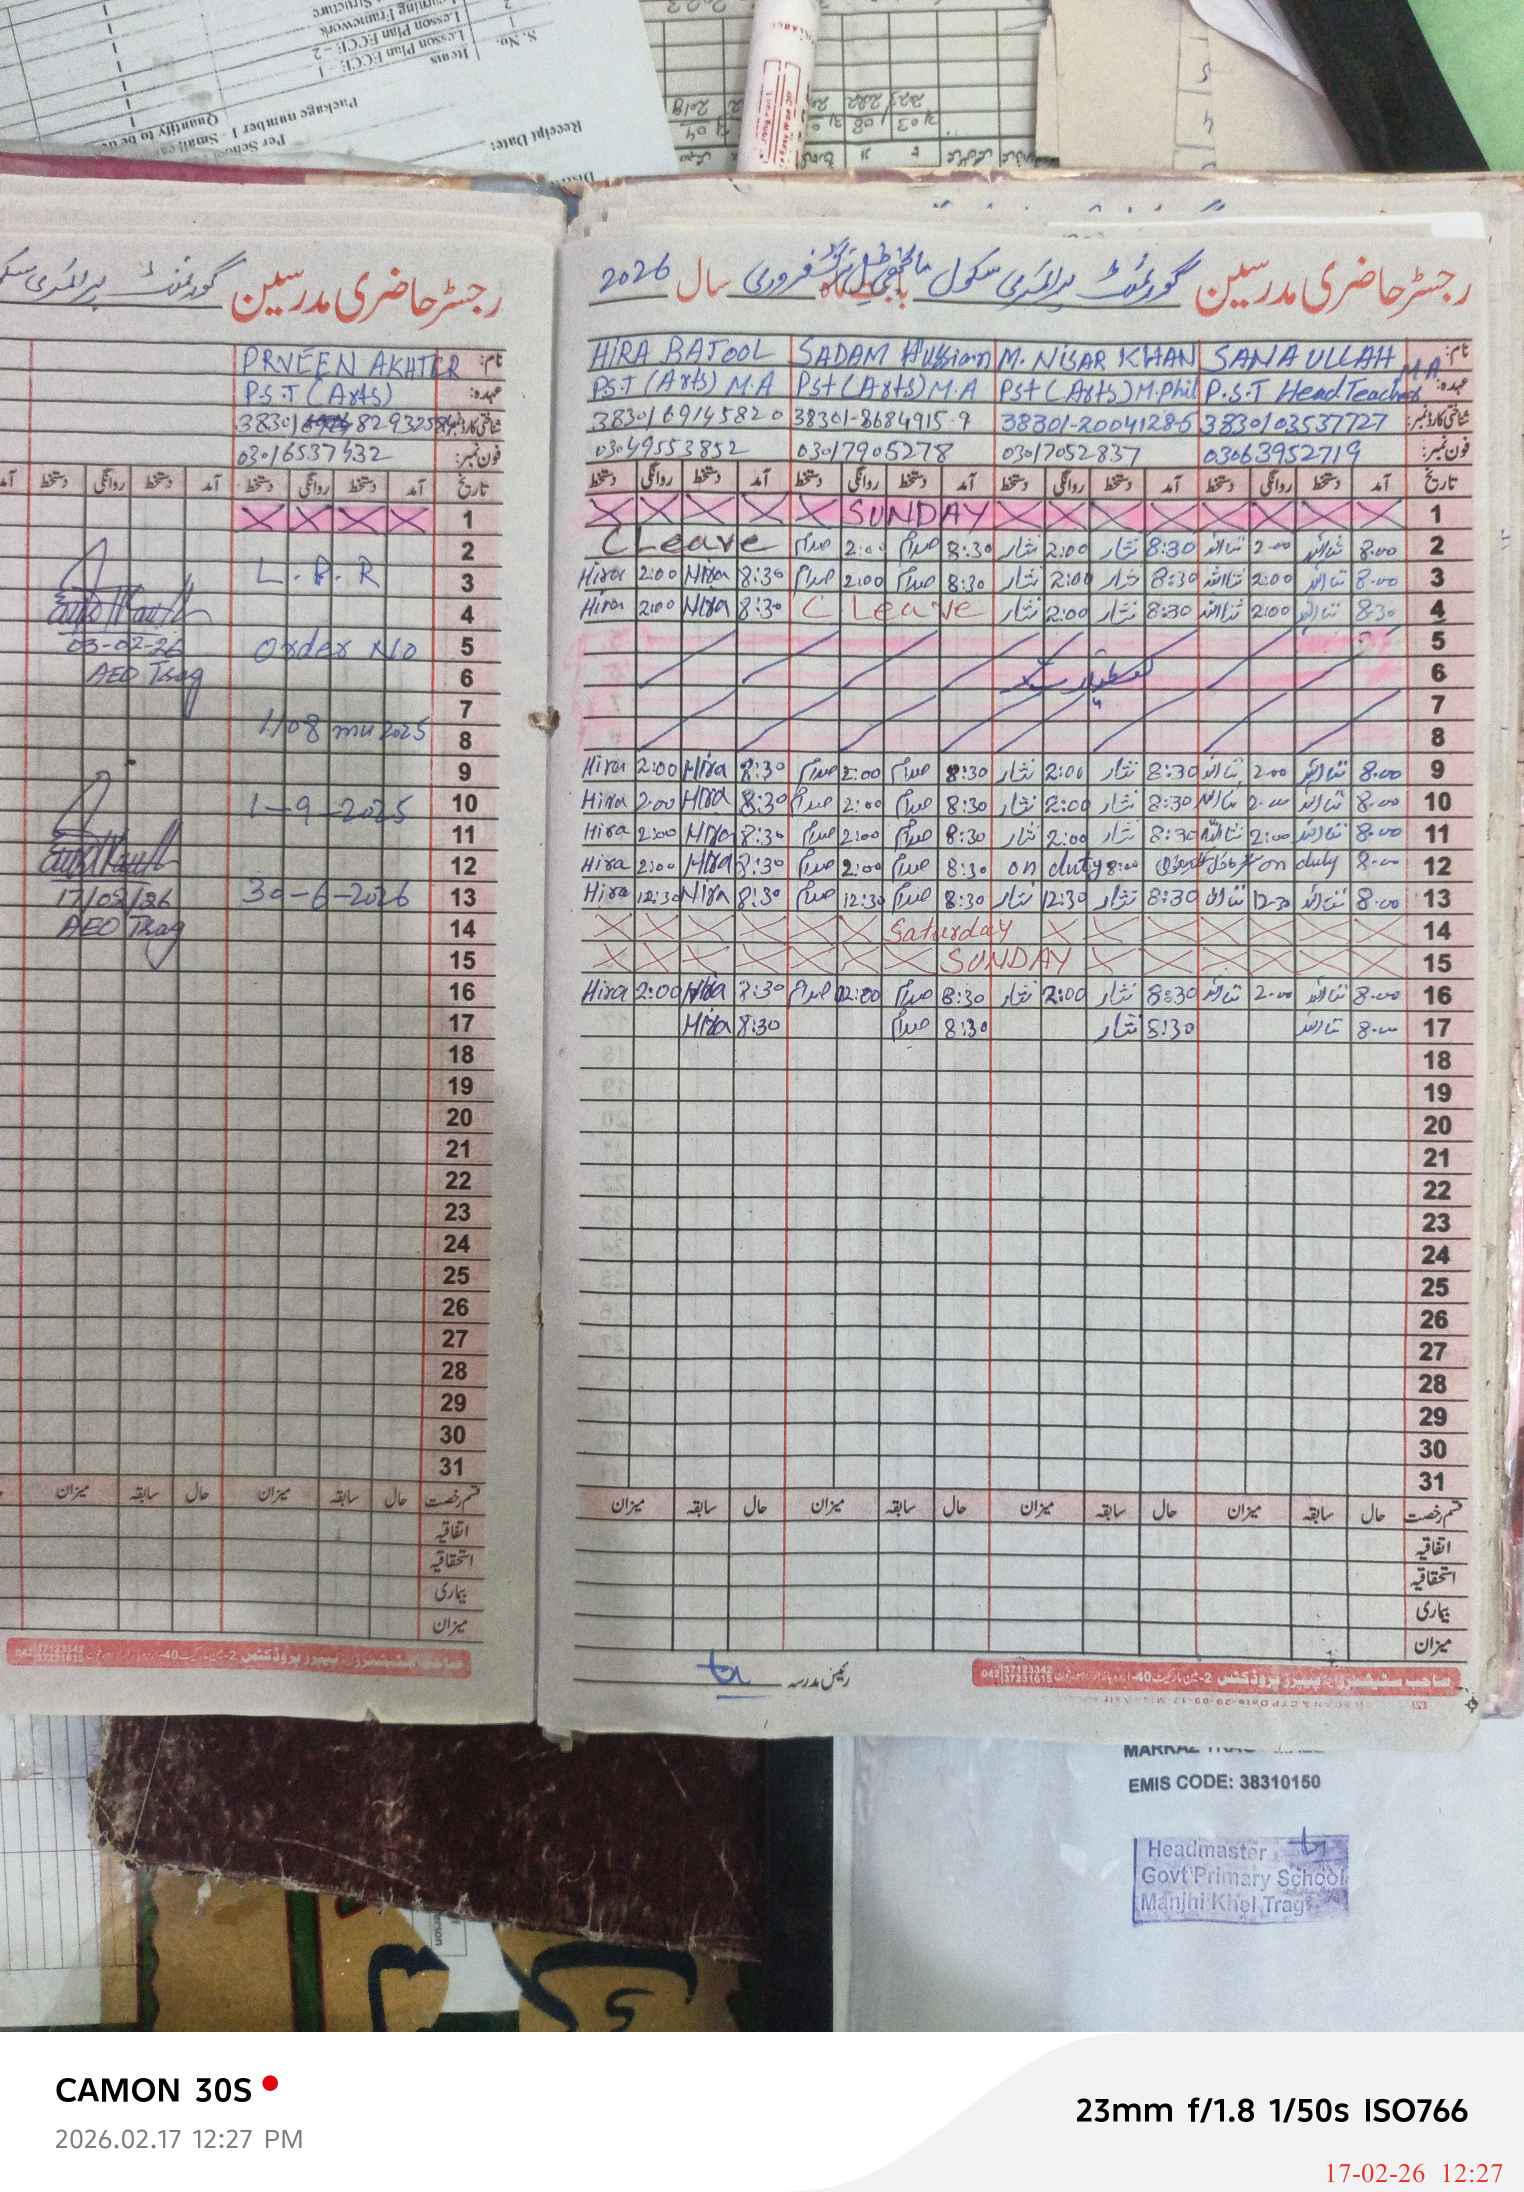 S. No.
Items
Lesson Plan ECCE - 1
Lesson Plan ECCE - 2
Package number 1
Receipt Date:
رجسٹر حاضری مدرسین گورنمنٹ پرائمری
PRVEEN AKHTER نام:
P.S.T (Arts) عہدہ:
شناختی کارڈ نمبر:
03016537432 فون نمبر:
آمد دستخط روانگی دستخط آمد دستخط روانگی دستخط تاریخ
1
2
L.P.R 3
4
03-02-26 Order No 5
AEO Trag 6
7
1108 mu 2025 8
9
1-9-2025 10
11
12
17/02/26 30-6-2026 13
AEO Trag 14
15
16
17
18
19
20
21
22
23
24
25
26
27
28
29
30
31
قسم رخصت حال سابقہ میزان حال سابقہ میزان
اتفاقیہ
استحقاقیہ
بیماری
میزان
رجسٹر حاضری مدرسین گورنمنٹ پرائمری سکول فروری سال 2026
HIRA BATOOL SADAM Hussian M. NISAR KHAN SANA ULLAH M.A نام:
P.S.T (Arts) M.A Pst (Arts) M.A Pst (Arts) M.Phil P.S.T Head Teacher عہدہ:
3830169145820 38301-8684915-9 38301-2004128-5 3830103537727 شناختی کارڈ نمبر:
03049553852 03017905278 03017052837 03063952719 فون نمبر:
دستخط روانگی دستخط آمد دستخط روانگی دستخط آمد دستخط روانگی دستخط آمد دستخط روانگی دستخط آمد تاریخ
SUNDAY 1
C Leave صدام 2:00 صدام 8:30 نثار 2:00 نثار 8:30 ثناءاللہ 2:00 ثناءاللہ 8:00 2
Hira 2:00 Hira 8:30 صدام 2:00 صدام 8:30 نثار 2:00 نثار 8:30 ثناءاللہ 2:00 ثناءاللہ 8:00 3
Hira 2:00 Hira 8:30 C Leave نثار 2:00 نثار 8:30 ثناءاللہ 2:00 ثناءاللہ 8:30 4
5
6
7
8
Hira 2:00 Hira 8:30 صدام 2:00 صدام 8:30 نثار 2:00 نثار 8:30 ثناءاللہ 2:00 ثناءاللہ 8:00 9
Hira 2:00 Hira 8:30 صدام 2:00 صدام 8:30 نثار 2:00 نثار 8:30 ثناءاللہ 2:00 ثناءاللہ 8:00 10
Hira 2:00 Hira 8:30 صدام 2:00 صدام 8:30 نثار 2:00 نثار 8:30 ثناءاللہ 2:00 ثناءاللہ 8:00 11
Hira 2:00 Hira 8:30 صدام 2:00 صدام 8:30 on duty 8:00 on duty 8:00 12
Hira 12:30 Hira 8:30 صدام 12:30 صدام 8:30 نثار 12:30 نثار 8:30 ثناءاللہ 12:30 ثناءاللہ 8:00 13
Saturday 14
SUNDAY 15
Hira 2:00 Hira 8:30 صدام 2:00 صدام 8:30 نثار 2:00 نثار 8:30 ثناءاللہ 2:00 ثناءاللہ 8:00 16
Hira 8:30 صدام 8:30 نثار 8:30 ثناءاللہ 8:00 17
18
19
20
21
22
23
24
25
26
27
28
29
30
31
قسم رخصت حال سابقہ میزان حال سابقہ میزان حال سابقہ میزان حال سابقہ میزان
اتفاقیہ
استحقاقیہ
بیماری
میزان
رئیس مدرسہ
042 37123342
37231615
EMIS CODE: 38310150
Headmaster
Govt Primary School
Manjhi Khel Trag
CAMON 30S
2026.02.17 12:27 PM
23mm f/1.8 1/50s ISO766
17-02-26 12:27